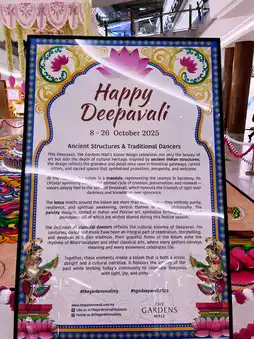 Happy
Deepavali
8 - 26 October 2025
Ancient Structures & Traditional Dancers
This Deepavali, The Gardens Mall's kolam design celebrates not only the beauty of
art but also the depth of cultural heritage. Inspired by ancient Indian structures,
the design reflects the grandeur and detail once seen in historical gateways, carved
pillars, and sacred spaces that symbolised protection, prosperity, and welcome.
At the is a mandala, representing the cosmos in harmony. Its
circular symmetry cycle of creation, preservation, and renewal –
values deeply tied to the of Deepavali, which honours the triumph of light over
darkness and knowledge over ignorance.
The lotus motifs around the kolam are more than They embody purity,
resilience, and spiritual awakening, central themes in philosophy. The
paisley designs, rooted in Indian and Persian art, symbolise fertility,
abundance, all of which are wishes shared during this festive season.
The inclusion of classical dancers reflects the cultural essence of Deepavali. For
centuries, dance and music have been an integral part of celebration, storytelling,
and devotion in Indian tradition. Their graceful forms in the kolam echo the
rhythms of Bharatanatyam and other classical arts, where every gesture conveys
meaning and every movement celebrates life.
Together, these elements create a kolam that is both a visual
delight and a cultural narrative. It honours the of the
past while inviting today's community to celebrate Deepavali
with light, joy, and unity.
#thegardensmallmy #tgmdeepavali2025
www.thegardensmall.com.my
Like us at thegardensmallmalaysia
Follow us @thegardensmallmy
THE
GARDENS
MALL